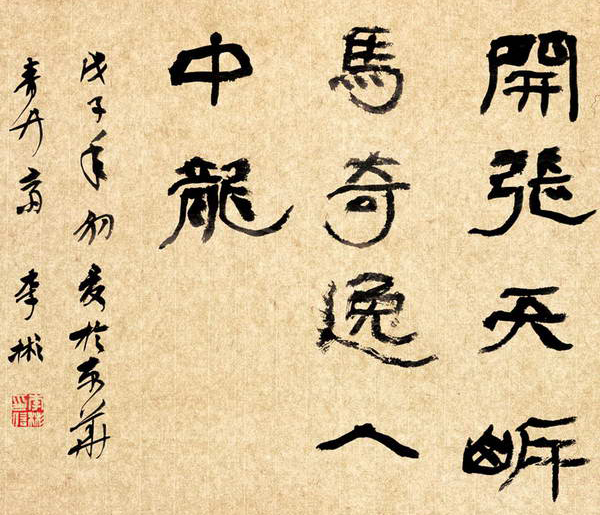 開張天岸
馬奇逸人
中龍
戊子年初夏於京華
李彬